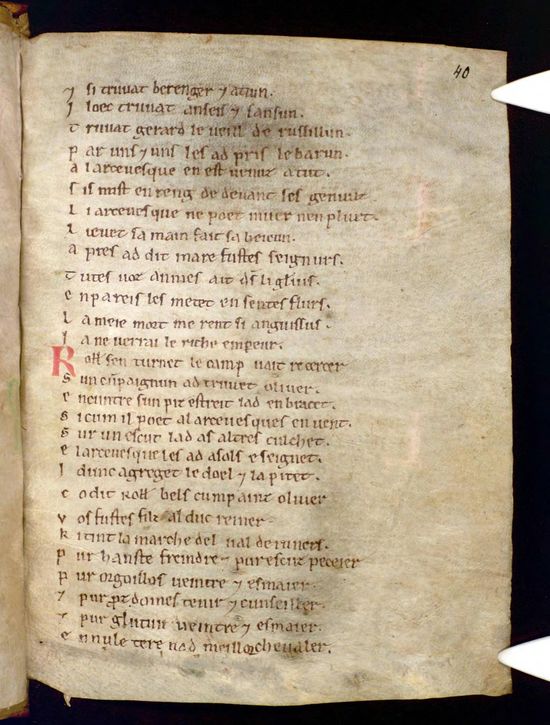 40
⁊ si truvat berenger ⁊ atuin.
I loec truvat anseis ⁊ sansun.
T ruvat gerard le veill de russillun.
P ar uns ⁊ uns les ad pris le barun.
A l arcevesque en est venuz atut.
S is mist en reng dedevant ses genuilz
L i arcevesque ne poet muer nen plurt.
L evet sa main fait sa beneicun.
A pres ad dit mare fustes seignurs.
T utes voz anmes ait ds li glius.
E n pareis les metet en seintes flurs.
L a meie mort me rent si anguissus.
J a ne verrai le riche empereur.
Roll sen turnet le camp vait recercer
S un cumpaignun ad truvet oliver.
E ncuntre sun piz estreit lad enbracet.
S icum il poet al arcevesques en vent.
S ur un escut lad as altres culchet.
E larcevesque les ad asols e seignet.
I dunc agreget le doel ⁊ la pitet.
C o dit Roll bels cumpainz oliver
V os fustes filz al duc reiner
K i tint la marche del val de runers.
P ur hanste freindre ⁊ pur escuz peceier
P ur orguillos veintre ⁊ esmaier.
⁊ pur prozdomes tenir ⁊ cunseiller.
⁊ pur glutun veintre ⁊ esmaier.
E n nule tere nad meillor chevaler.